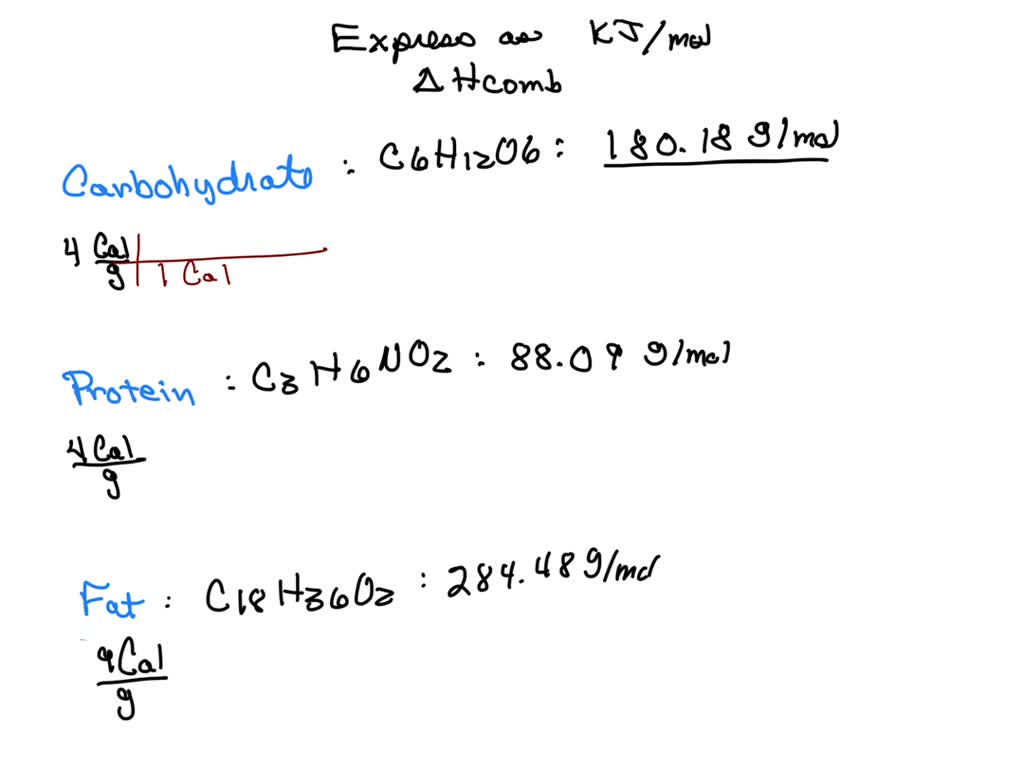 Express as KJ/mol
ΔHcomb
Carbohydrate : C6H12O6 : 180.18 g/mol
4 Cal/g | 1 Cal
Protein : C3H6NO2 : 88.09 g/mol
4 Cal/g
Fat : C18H36O2 : 284.48 g/mol
9 Cal/g